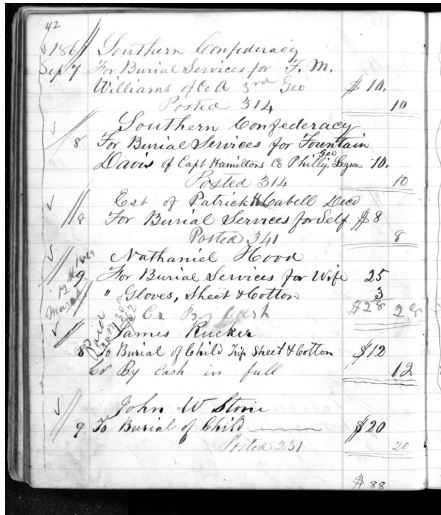 42
1861 Southern Confederacy
Sep 7 For Burial Services for F. M.
Williams of Co A 3rd Geo $10.
Posted 314 10
Southern Confederacy
8 For Burial Services for Fountain
Davis of Capt Hamiltons Co Phillip Geo Legion 10.
Posted 314 10
Est of Patrick H Cabell Decd
8 For Burial Services for Self $8
Posted 341 8
Nathaniel Hood
9 For Burial Services for Wife 25
" Gloves, Sheet & Cotton 3
Cr By Cash $28 28
Paid
March
James Rucker
8 To Burial of Child Trip Sheet & Cotton $12
Cr By Cash in full 12
John W Stone
9 To Burial of Child $20
Posted 231 20
$88